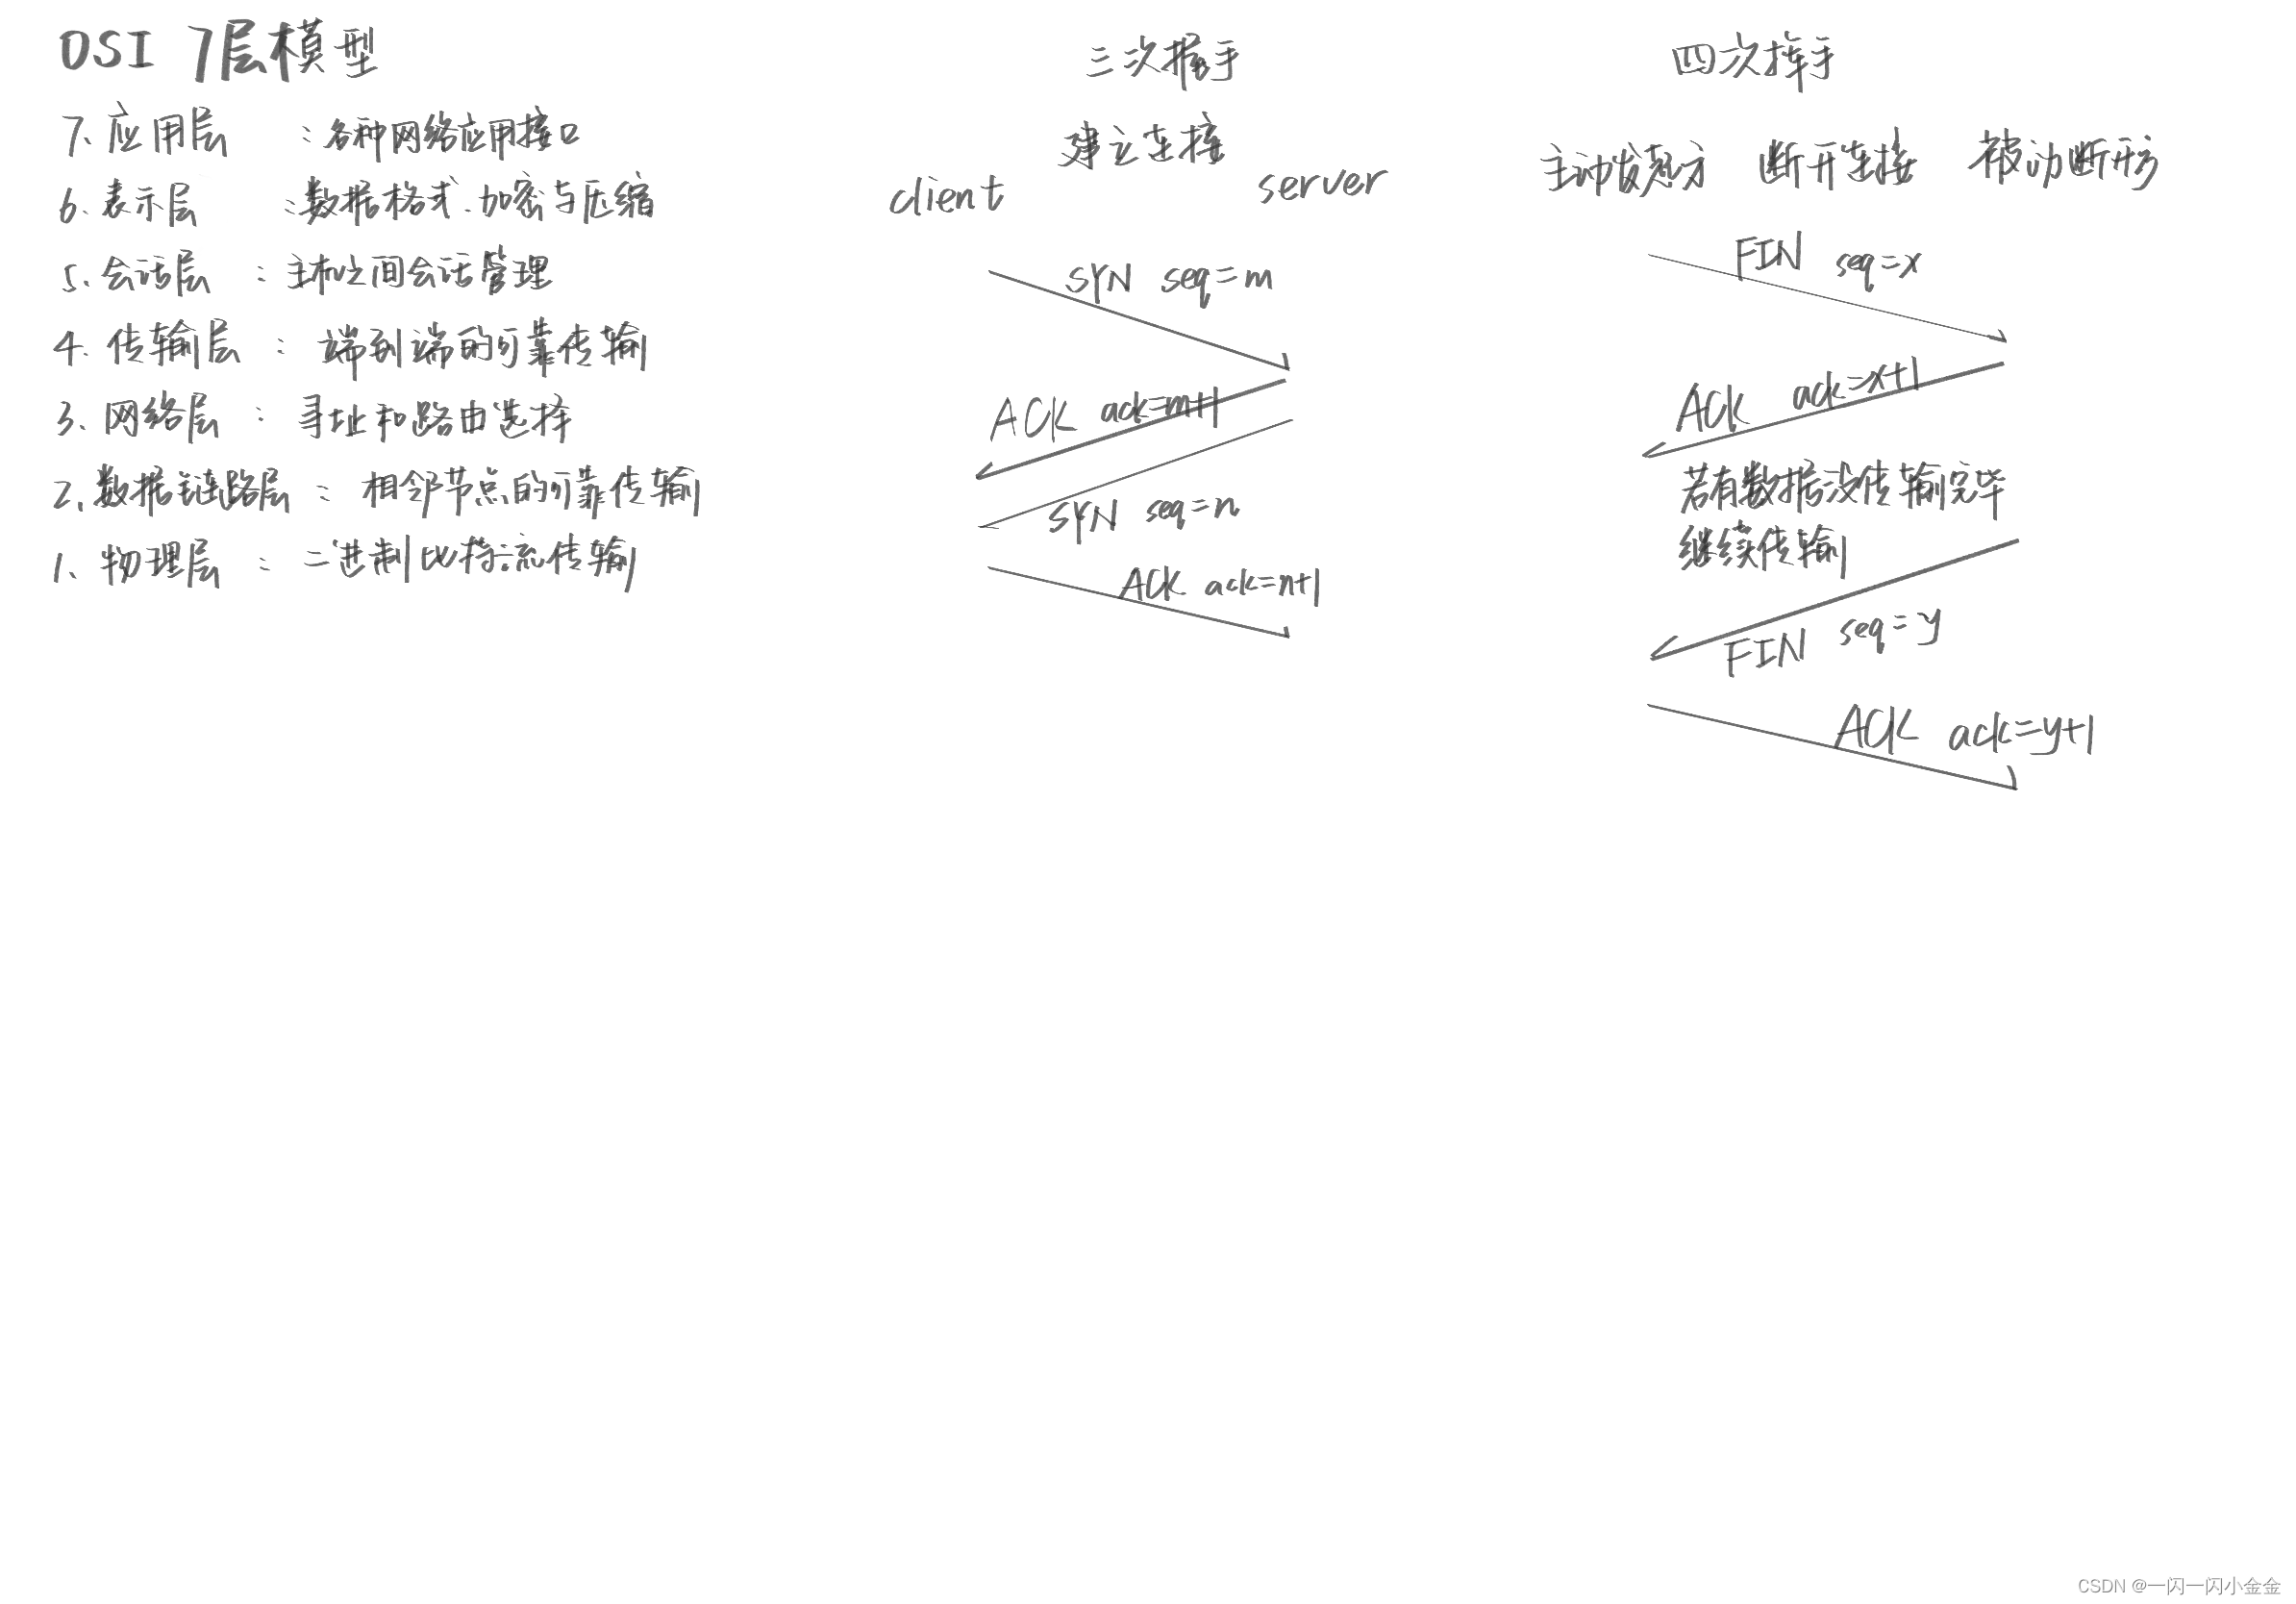 OSI 7层模型
7、应用层 ：各种网络应用接口
6、表示层 ：数据格式、加密与压缩
5、会话层 ：主机之间会话管理
4、传输层 ： 端到端的可靠传输
3、网络层 ： 寻址和路由选择
2、数据链路层 ： 相邻节点的可靠传输
1、物理层 ： 二进制比特流传输
三次握手
建立连接
client server
SYN seq=m
ACK ack=m+1
SYN seq=n
ACK ack=n+1
四次挥手
主动发起方 断开连接 被动断开方
FIN seq=x
ACK ack=x+1
若有数据没传输完毕
继续传输
FIN seq=y
ACK ack=y+1
CSDN @一闪一闪小金金